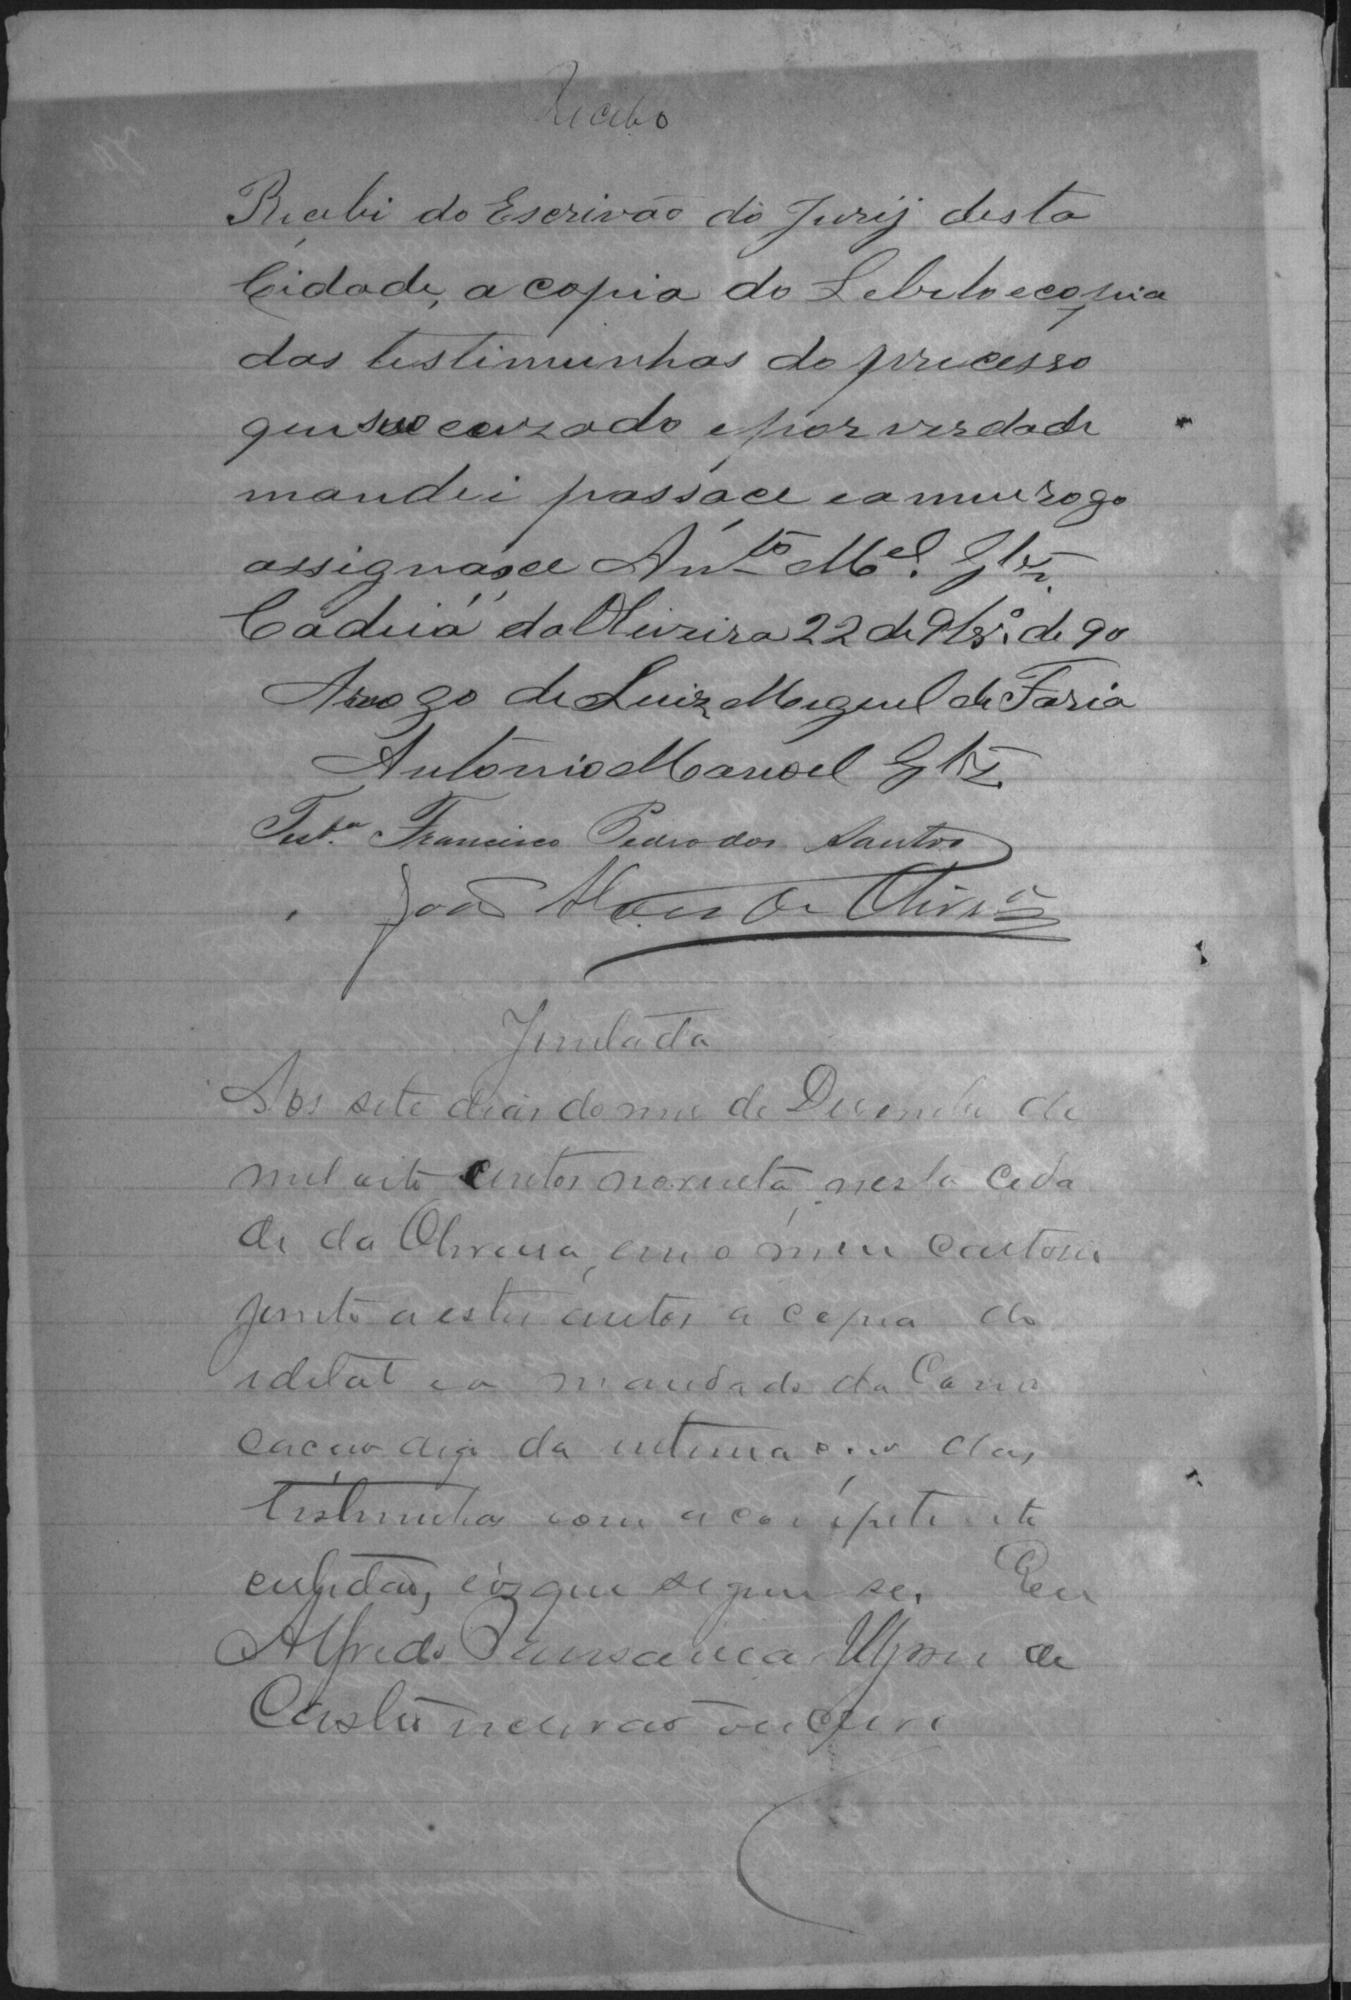 Recebo
Recebi do Escrivão do Jurij desta
Cidade, a copia do Lebelo e copia
das testimunhas do processo
que sou cuzado e por verdade
mandei passáce e a meu rogo
assignáce Anto Mel. Glz
Cadeia da Oliveira 22 de 9br.o de 90
Arrogo de Luiz Miguel de Faria
Antonio Manoel Glz
Test.a Francisco Pedro dos Santos
João de Oliveira
Juntada
Aos sete dias do mez de Dezembro de
mil oito centos noventa, nesta cida
de da Oliveira, em o meu cartorio
junto a estes autos a copia do
edital e o mandado da Convo
cação digo da intimação das
testimunhas com a competente
certidão, e os que segue se. Eu
Alfredo de
Castro escrivão